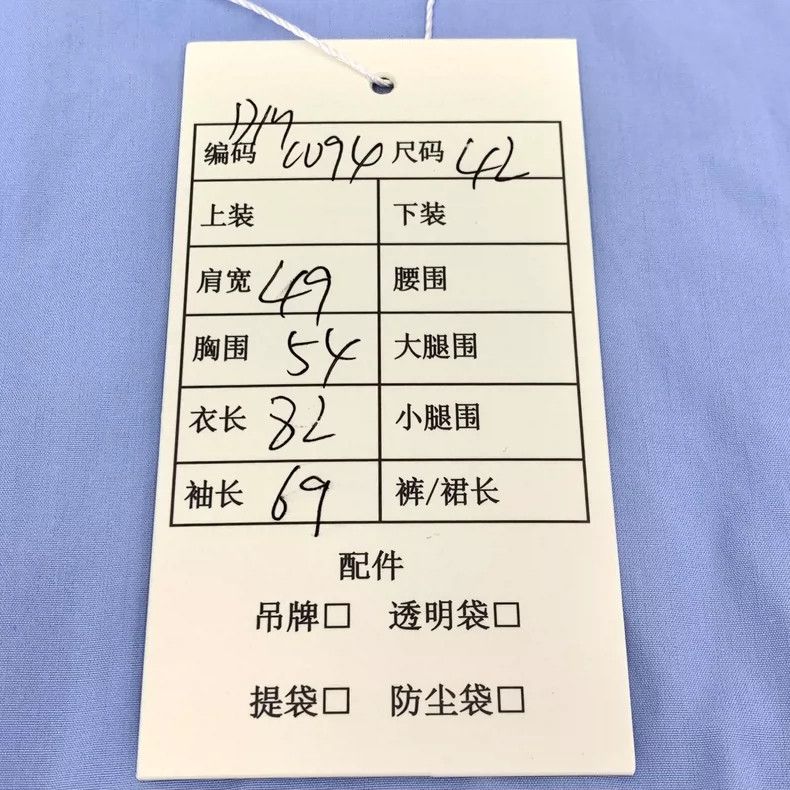 编码 尺码 42
上装 下装
肩宽 49 腰围
胸围 54 大腿围
衣长 82 小腿围
袖长 69 裤/裙长
配件
吊牌□ 透明袋□
提袋□ 防尘袋□